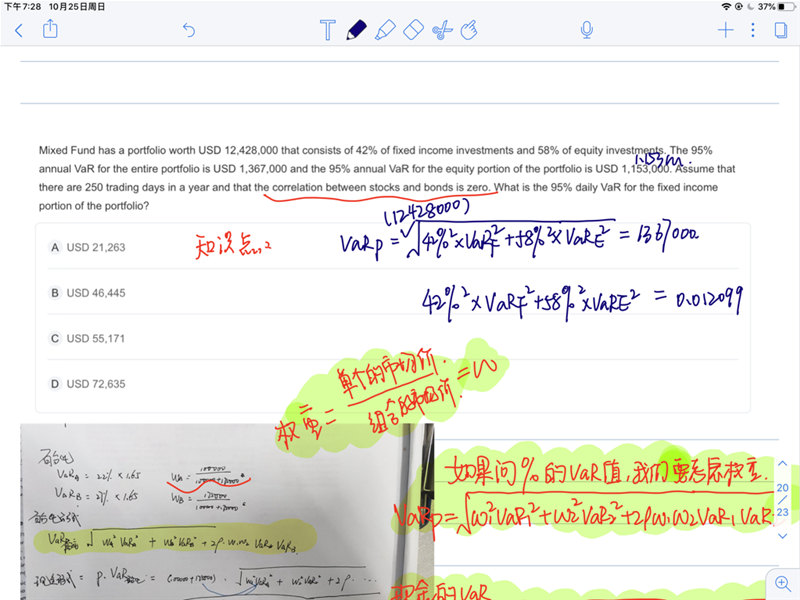 下午7:28 10月25日周日
37%
Mixed Fund has a portfolio worth USD 12,428,000 that consists of 42% of fixed income investments and 58% of equity investments. The 95%
1.153m.
annual VaR for the entire portfolio is USD 1,367,000 and the 95% annual VaR for the equity portion of the portfolio is USD 1,153,000. Assume that
there are 250 trading days in a year and that the correlation between stocks and bonds is zero. What is the 95% daily VaR for the fixed income
portion of the portfolio?
(12428000)
A USD 21,263
知识点
VaRp = √42%²×VaRF²+58%²×VaRE² = 1367000
B USD 46,445
42%²×VaRF²+58%²×VaRE² = 0.012099
C USD 55,171
D USD 72,635
权重=单个的市场价/组合的市场价=W
如果问%的VaR值,我们要考虑权重.
VaRp=√W1²VaR1²+W2²VaR2²+2ρW1W2VaR1VaR
VaRA = 22% × 1.65
VaRB = 27% × 1.65
20
23
现金的VaR